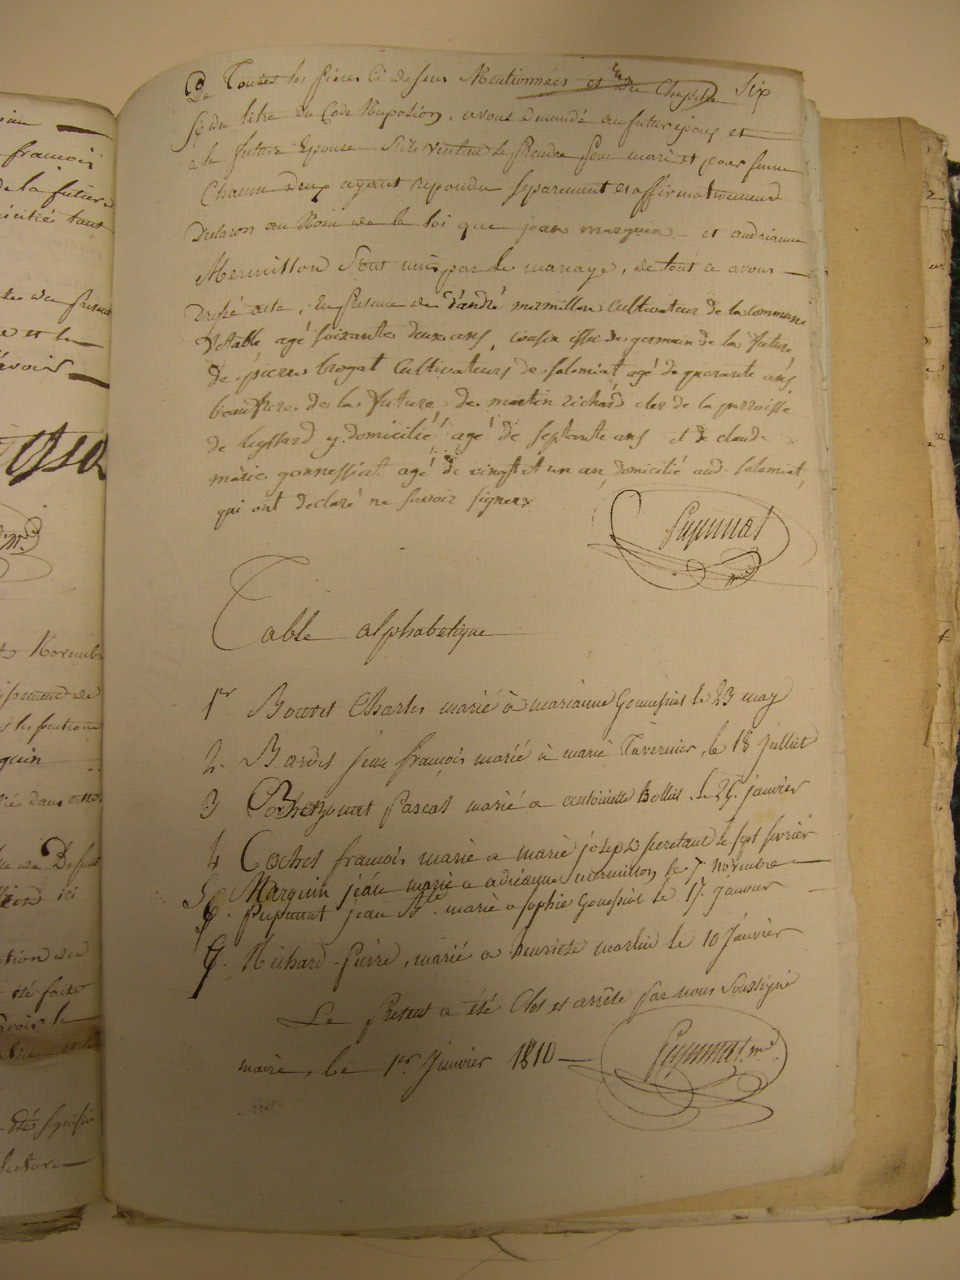 De Toutes les pièces ci dessus Mentionnées et du Chapitre Six
du titre du Code Napoléon, avons demandé au futur époux et
a la future Epouse S'ils veulent se prendre pour mari et pour femme
Chacun d'eux ayant repondu separement et affirmativement
Declaron au Nom de la loi que jean marguin et andrianne
Mermillon Sont unis par le mariage, de tout ce avons
dressé acte, En presence de d'andré mermillon cultivateur de la commune
D'etable agé soixante deux ans, cousin issu de germain de la future,
de pierre brogat cultivateurs de solomiat agé de quarante ans,
beaufrere de la future, de martin richard clerc de la parroisse
de leyssard y domicilié agé de septante ans et de claude
marie gonnessiat agé de vingt et un an domicilié aud. solomiat,
qui ont declaré ne savoir signer
Pupunat
Table alphabetique
1er Bouvet Charles marié à marianne Gonnessiat le 23 may
2. Bardet jean françois marié à marie Tavernier, le 18 Juilliet
3 Pascal marié a antoinette Bolliet le 25 janvier
4 Cochet francois marié a marie joseph le sept fevrier
5 Marguin jean marié a adrianne mermillon le 7 novembre
6. Pupunat jean Bte marié a sophie Gonessiat le 17 janvier
7. Richard pierre, marié a henriete martin le 10 Janvier
Le present a été Clos et arrêté par nous soussigné
maire, le 1er Janvier 1810
Pupunat me
françois
de la future
tant
et le
savoir
Novembre
été faite
savoir le
été signifié
lecture